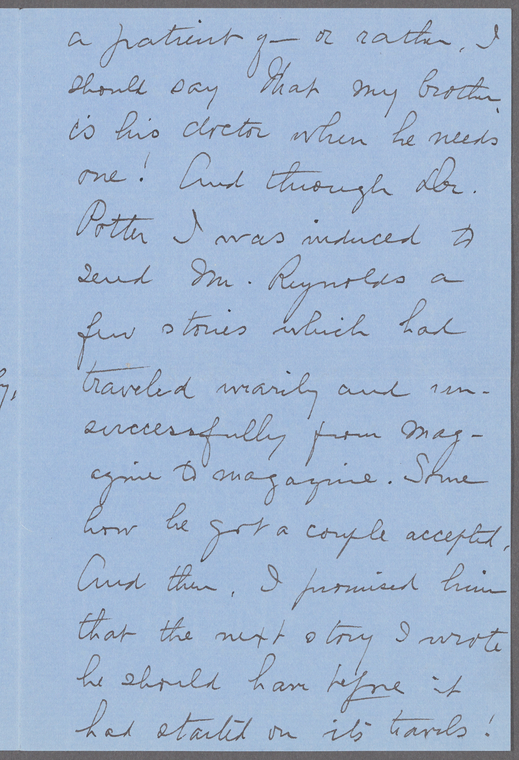 a patient of — or rather, I
should say that my brother
is his doctor when he needs
one! And through Dr.
Potter I was induced to
send Mr. Reynolds a
few stories which had
traveled wearily and un-
successfully from mag-
azine to magazine. Some
how he got a couple accepted.
And then, I promised him
that the next story I wrote
he should have before it
had started on its travels!